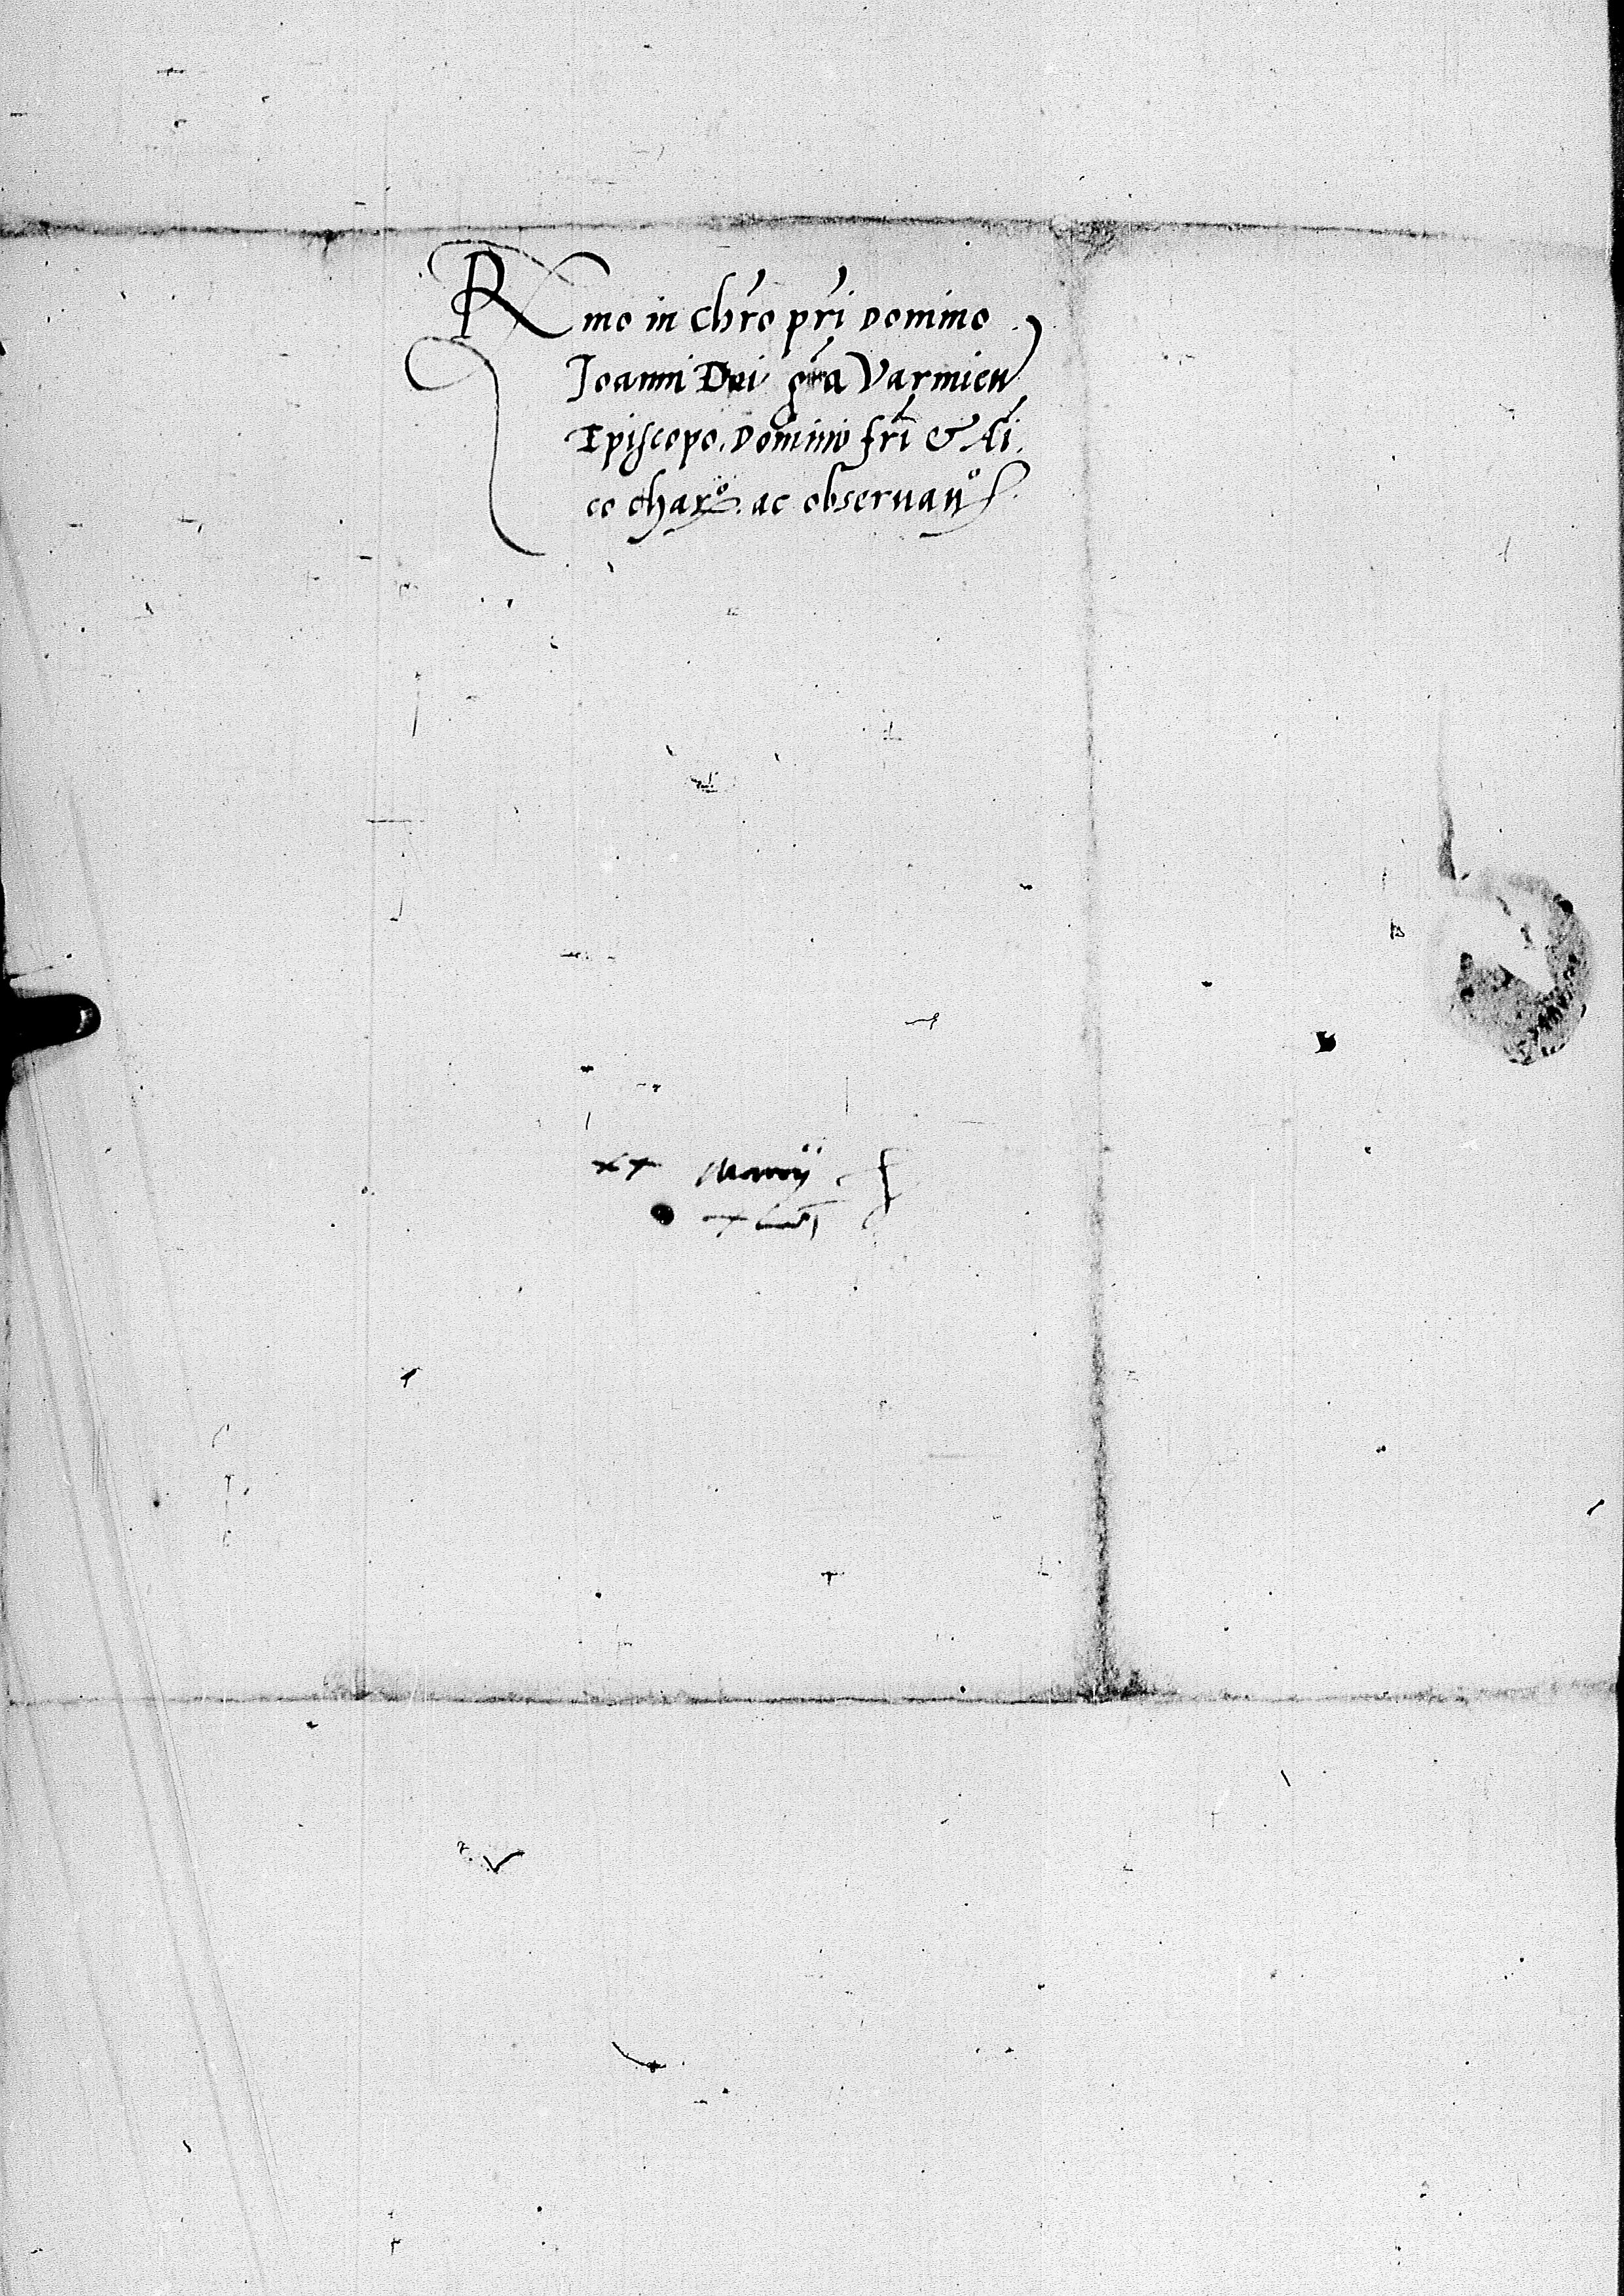 Rmo in chr̄o pr̄i domino
Joanni Dei gr̄a Varmien̄
Episcopo. Domino fr̄i & Ami
co char̊o. ac observan̊
xx Marcij